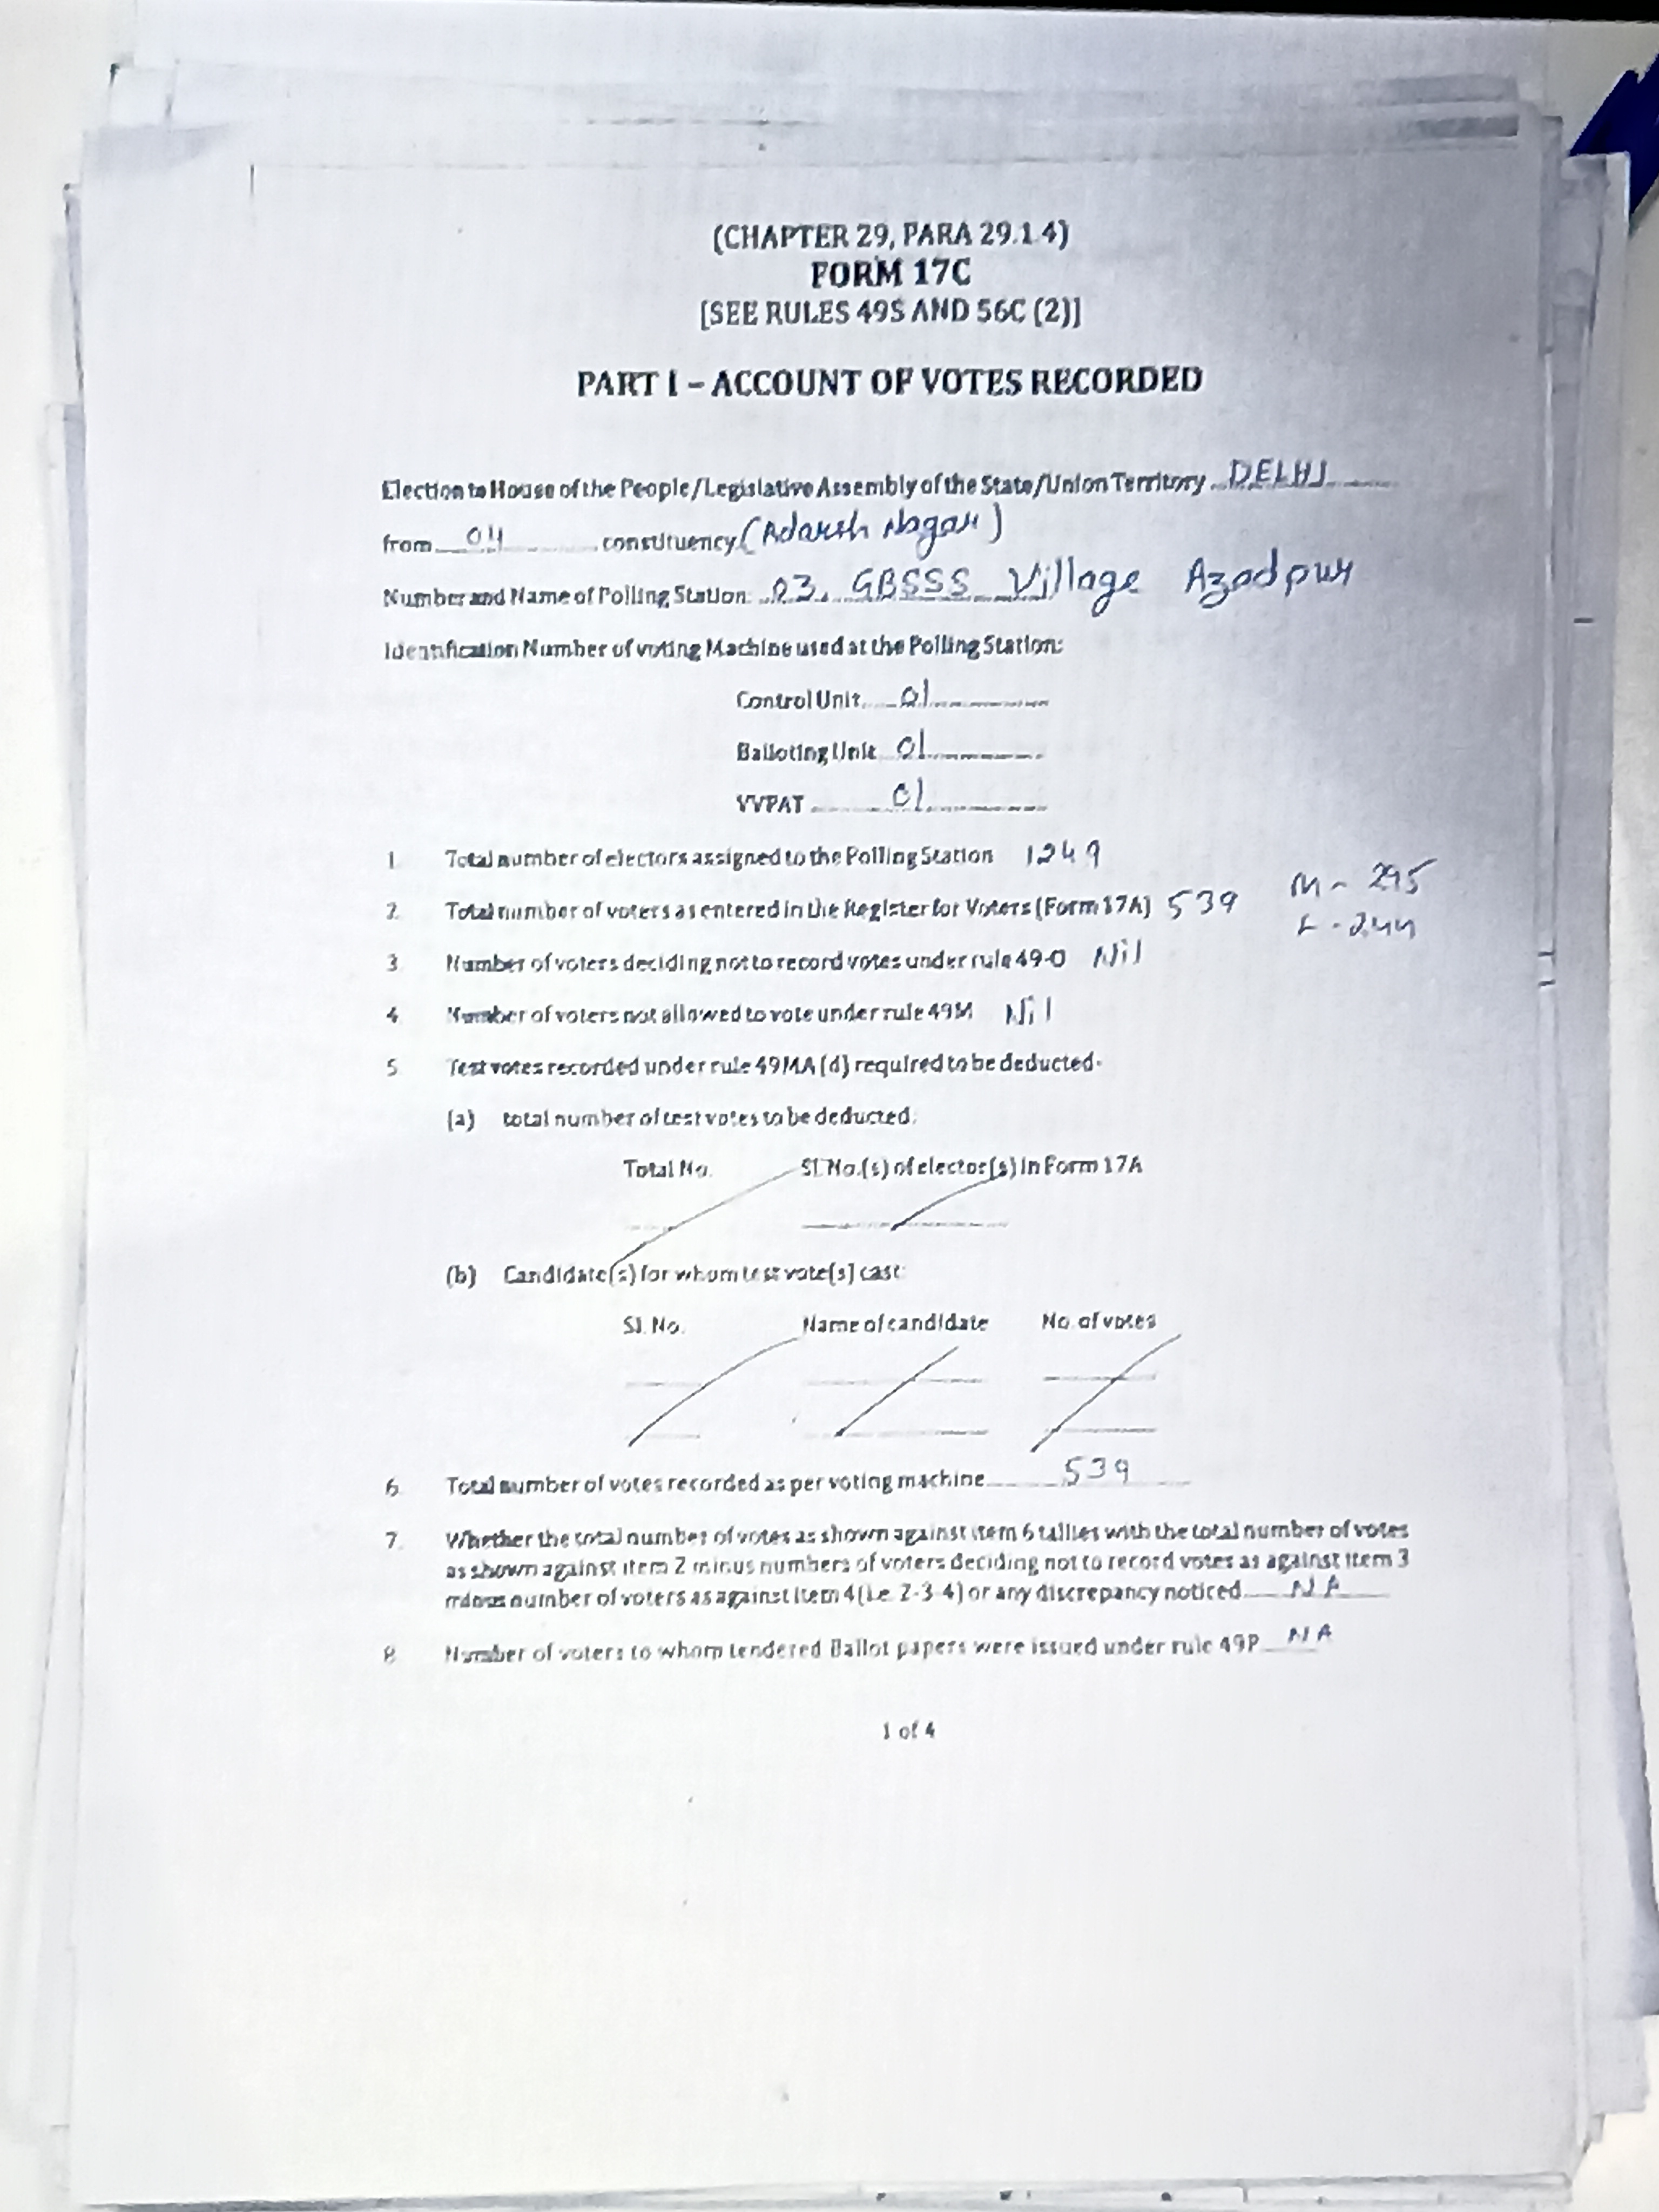 (CHAPTER 29, PARA 29.1.4)
FORM 17C
[SEE RULES 49S AND 56C (2)]
PART I – ACCOUNT OF VOTES RECORDED
Election to House of the People/Legislative Assembly of the State/Union Territory DELHI
from 04 constituency (Adarsh Nagar)
Number and Name of Polling Station: 03, GBSSS Village Azadpur
Identification Number of voting Machine used at the Polling Station:
Control Unit 01
Balloting Unit 01
VVPAT 01
1. Total number of electors assigned to the Polling Station 1249
2. Total number of voters as entered in the Register for Voters (Form 17A) 539 M - 295
F - 244
3. Number of voters deciding not to record votes under rule 49-O Nil
4. Number of voters not allowed to vote under rule 49M Nil
5. Test votes recorded under rule 49MA (d) required to be deducted-
(a) total number of test votes to be deducted:
Total No. Sl. No.(s) of elector(s) in Form 17A
(b) Candidate(s) for whom test vote(s) cast:
Sl. No. Name of candidate No. of votes
6. Total number of votes recorded as per voting machine 539
7. Whether the total number of votes as shown against item 6 tallies with the total number of votes
as shown against item 2 minus numbers of voters deciding not to record votes as against item 3
minus number of voters as against item 4 (i.e. 2-3-4) or any discrepancy noticed NA
8. Number of voters to whom tendered Ballot papers were issued under rule 49P NA
1 of 4